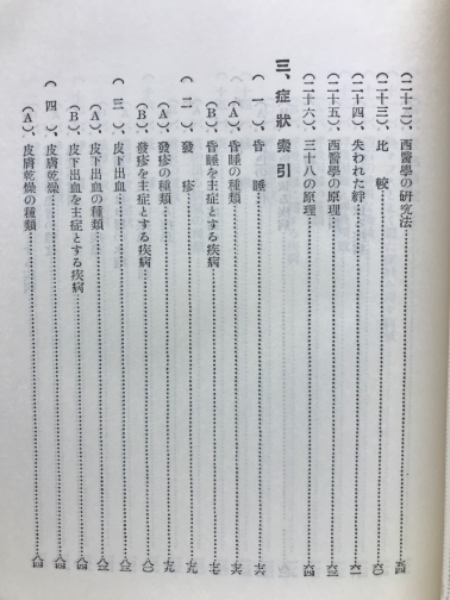 (二十二)、西醫學の研究法……五四
(二十三)、比較……六〇
(二十四)、失われた絆……六一
(二十五)、西醫學の原理……六三
(二十六)、三十八の原理……六四
三、症狀索引
(一)、昏睡……七六
(A)、昏睡の種類……七六
(B)、昏睡を主症とする疾病……七七
(二)、發疹……七九
(A)、發疹の種類……七九
(B)、發疹を主症とする疾病……八〇
(三)、皮下出血……八三
(A)、皮下出血の種類……八三
(B)、皮下出血を主症とする疾病……八四
(四)、皮膚乾燥……八四
(A)、皮膚乾燥の種類……八四